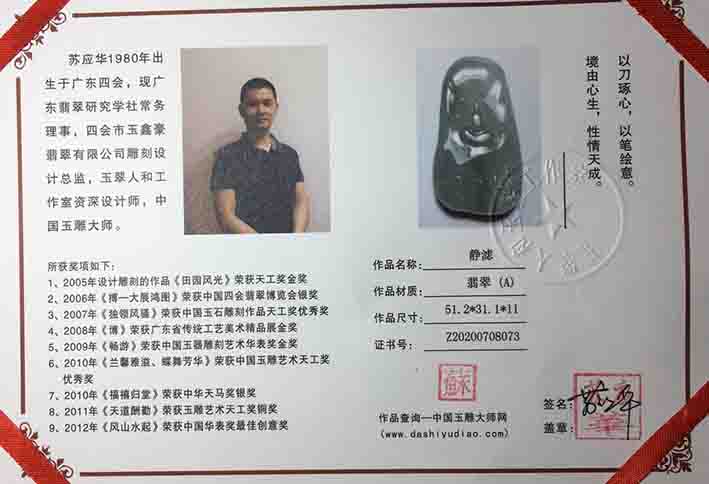 苏应华1980年出
生于广东四会，现广
东翡翠研究学社常务
理事，四会市玉鑫豪
翡翠有限公司雕刻设
计总监，玉翠人和工
作室资深设计师，中
国玉雕大师。
以刀琢心，以笔绘意。
境由心生，性情天成。
所获奖项如下：
1、2005年设计雕刻的作品《田园风光》荣获天工奖金奖
2、2006年《搏一大展鸿图》荣获中国四会翡翠博览会银奖
3、2007年《独领风骚》荣获中国玉石雕刻作品天工奖优秀奖
4、2008年《博》荣获广东省传统工艺美术精品展金奖
5、2009年《畅游》荣获中国玉器雕刻艺术华表奖金奖
6、2010年《兰馨雅溢、蝶舞芳华》荣获中国玉雕艺术天工奖
优秀奖
7、2010年《福禧归堂》荣获中华天马奖银奖
8、2011年《天道酬勤》荣获玉雕艺术天工奖铜奖
9、2012年《风山水起》荣获中国华表奖最佳创意奖
作品名称： 静滤
作品材质： 翡翠（A）
作品尺寸： 51.2*31.1*11
证书号： Z20200708073
作品查询—中国玉雕大师网
(www.dashiyudiao.com)
签名：
盖章：